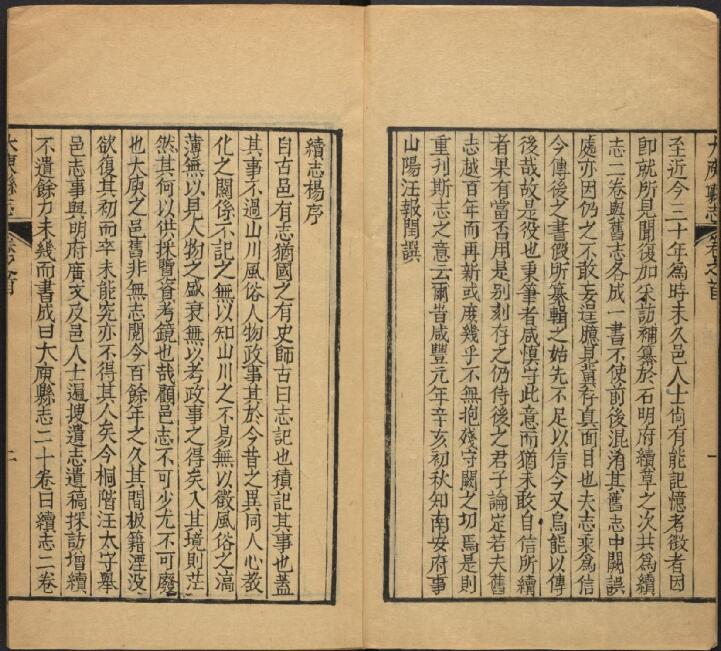 至近今三十年爲時未久邑人士尙有能記憶者徴者因
卽就所見聞復加采訪補纂於石明府續草之次共爲續
志二卷與舊志各成一書不使前後混淆其舊志中闕誤
處亦因仍之不敢妄逞臆見冀存真面目也夫志乘爲信
今傳後之書假所纂輯之始先不足以信今又烏能以傳
後哉故是役也秉筆者咸慎守此意而猶未敢自信所續
者果有當否用是別刻存之仍待後之君子論定若夫舊
志越百年而再新或庶幾乎不無抱殘守闕之切焉是則
重刋斯志之意云爾昔咸豐元年辛亥初秋知南安府事
山陽汪報閏譔
大庾縣志
卷之首
一
續志楊序
自古邑有志猶國之有史師古曰志記也積記其事也蓋
其事不過山川風俗人物政事其於今昔之異同人心敎
化之關係不記之無以知山川之不易無以徵風俗之漓
薄無以見人物之盛衰無以考政事之得矣入其境則茫
然其何以供採覽資考鏡也哉顧邑志不可少尤不可廢
也大庾之邑舊非無志閱今百餘年之久其間板籍湮没
欲復其初而卒未能究亦不得其人矣今桐階汪太守舉
邑志事與明府廣文及邑人士遍搜遺志遺稿採訪增續
不遺餘力未幾而書成曰大庾縣志二十卷曰續志二卷
大庾縣志
卷之首
二